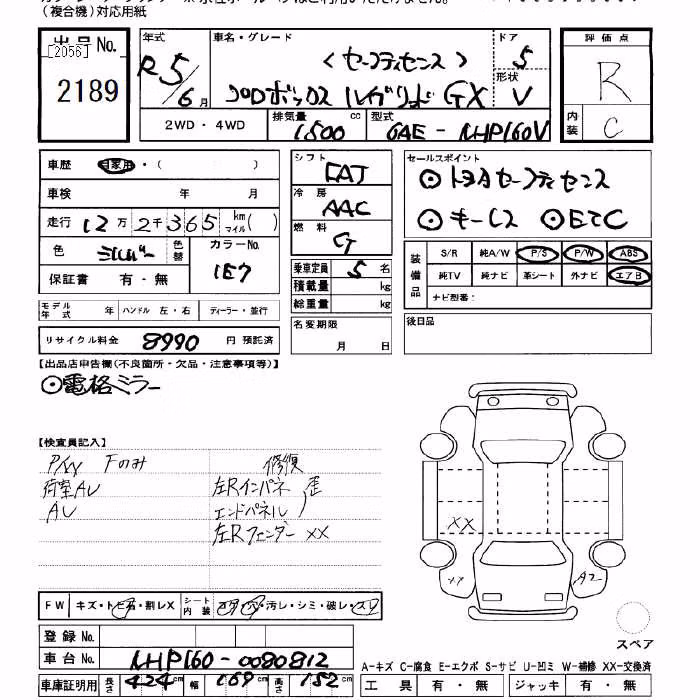 (複合機)対応用紙
出品No.
[2056]
2189
年式
R5/6月
車名・グレード
<セーフティセンス>
プロボックス ハイブリッド GX
ドア
5
形状
V
2WD・4WD
排気量
1500 cc
型式
6AE-NHP160V
評価点
R
内装
C
車歴 自家用・( )
車検 年 月
走行 12万2千365 km マイル( )
色 シルバー 色替 カラーNo. 1E7
保証書 有・無
モデル年式 年 ハンドル 左・右 ディーラー・並行
リサイクル料金 8990 円 預託済
シフト
FAT
冷房
AAC
燃料
G
乗車定員 5 名
積載量 kg
総重量 kg
名変期限
月 日
セールスポイント
⊙トヨタセーフティセンス
⊙キーレス ⊙ETC
装備品
S/R 純A/W P/S P/W ABS
純TV 純ナビ 革シート 外ナビ エアB
ナビ型番:
後日品
【出品店申告欄(不良箇所・欠品・注意事項等)】
⊙電格ミラー
【検査員記入】
P/W Fのみ
荷室AU
AU
修復
左Rインパネ 歪
エンドパネル
左Rフェンダー XX
XX
A2
スペア
FW キズ・トビ石・割レX シート内装 コゲ・穴・汚レ・シミ・破レ・スレ
登録No.
車台No. NHP160-0080812
車庫証明用 長さ 424 cm 幅 169 cm 高さ 152 cm
A-キズ C-腐食 E-エクボ S-サビ U-凹ミ W-補修 XX-交換済
工具 有・無 ジャッキ 有・無